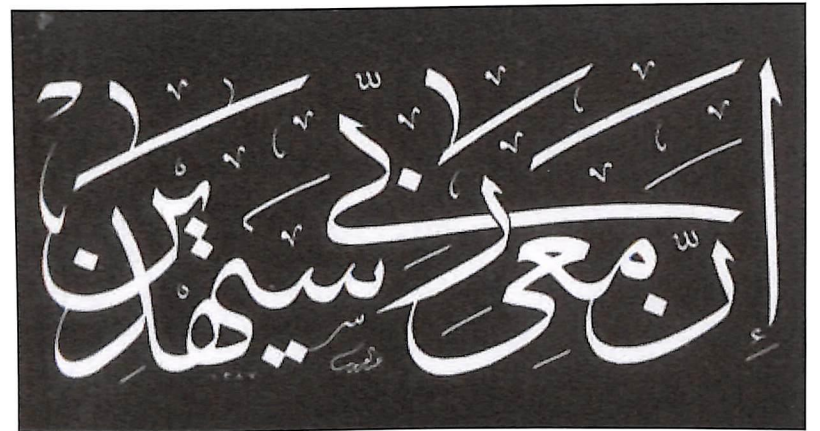 إِنَّ مَعِيَ رَبِّي سَيَهْدِينِ